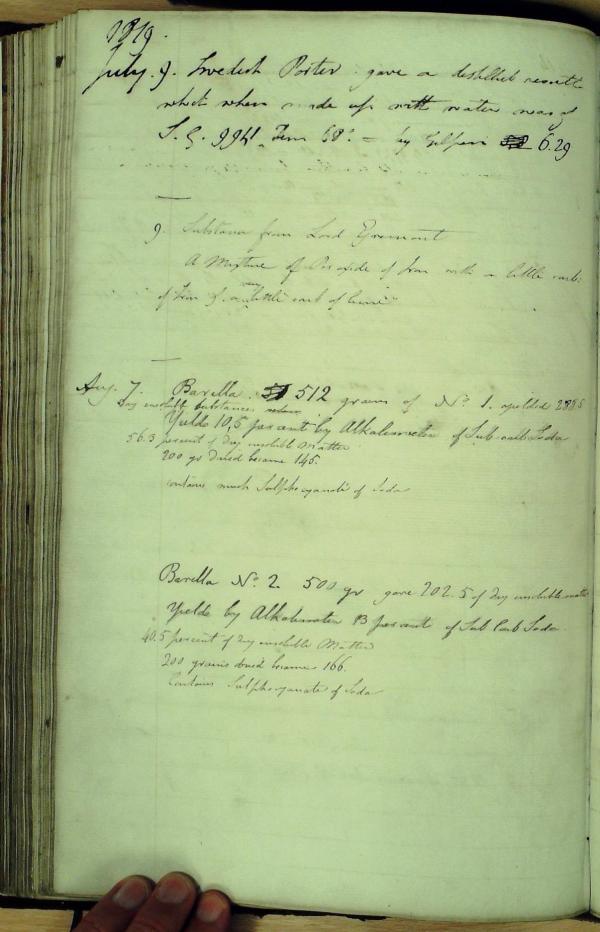 1819.
July. 9. Swedish Porter. gave a distilled result
which when made up with water was of
S. G. 994. Tem 58°. = by Gilpin 6.29
9. Substance from Lord Egremont
A Mixture of Peroxide of Iron with a little carb:
of Iron & a very little carb of lime
Aug. 7. Barilla. 512 grains of No. 1. yielded 288.5
Dry insoluble substances
Yields 10,5 per cent by Alkalimeter of Sub-carb Soda
56.3 percent of Dry insoluble Matter
200 grs dried became 145.
contains much Sulphocyanate of Soda
Barilla No. 2. 500 grs gave 202.5 of dry insoluble matter
Yields by Alkalimeter 13 percent of Sub Carb Soda
40.5 percent of Dry insoluble Matter
200 grains dried became 166.
Contains Sulphocyanate of Soda